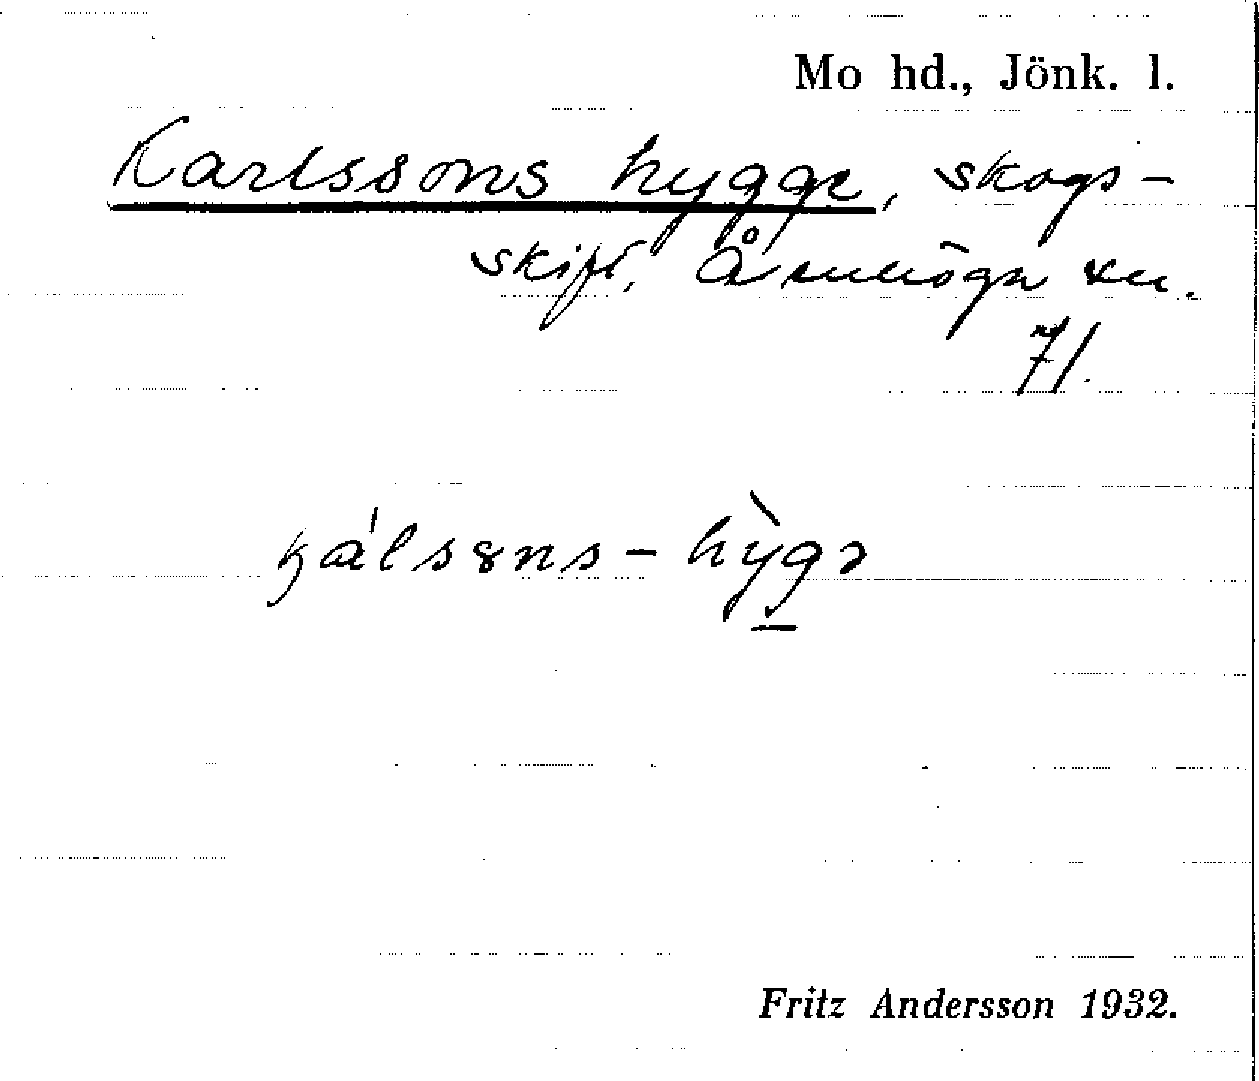 Mo hd., Jönk. l.
Karlssons hygge, skogs-
skift, Årnhöga
71.
kálsens-hỳgə
Fritz Andersson 1932.